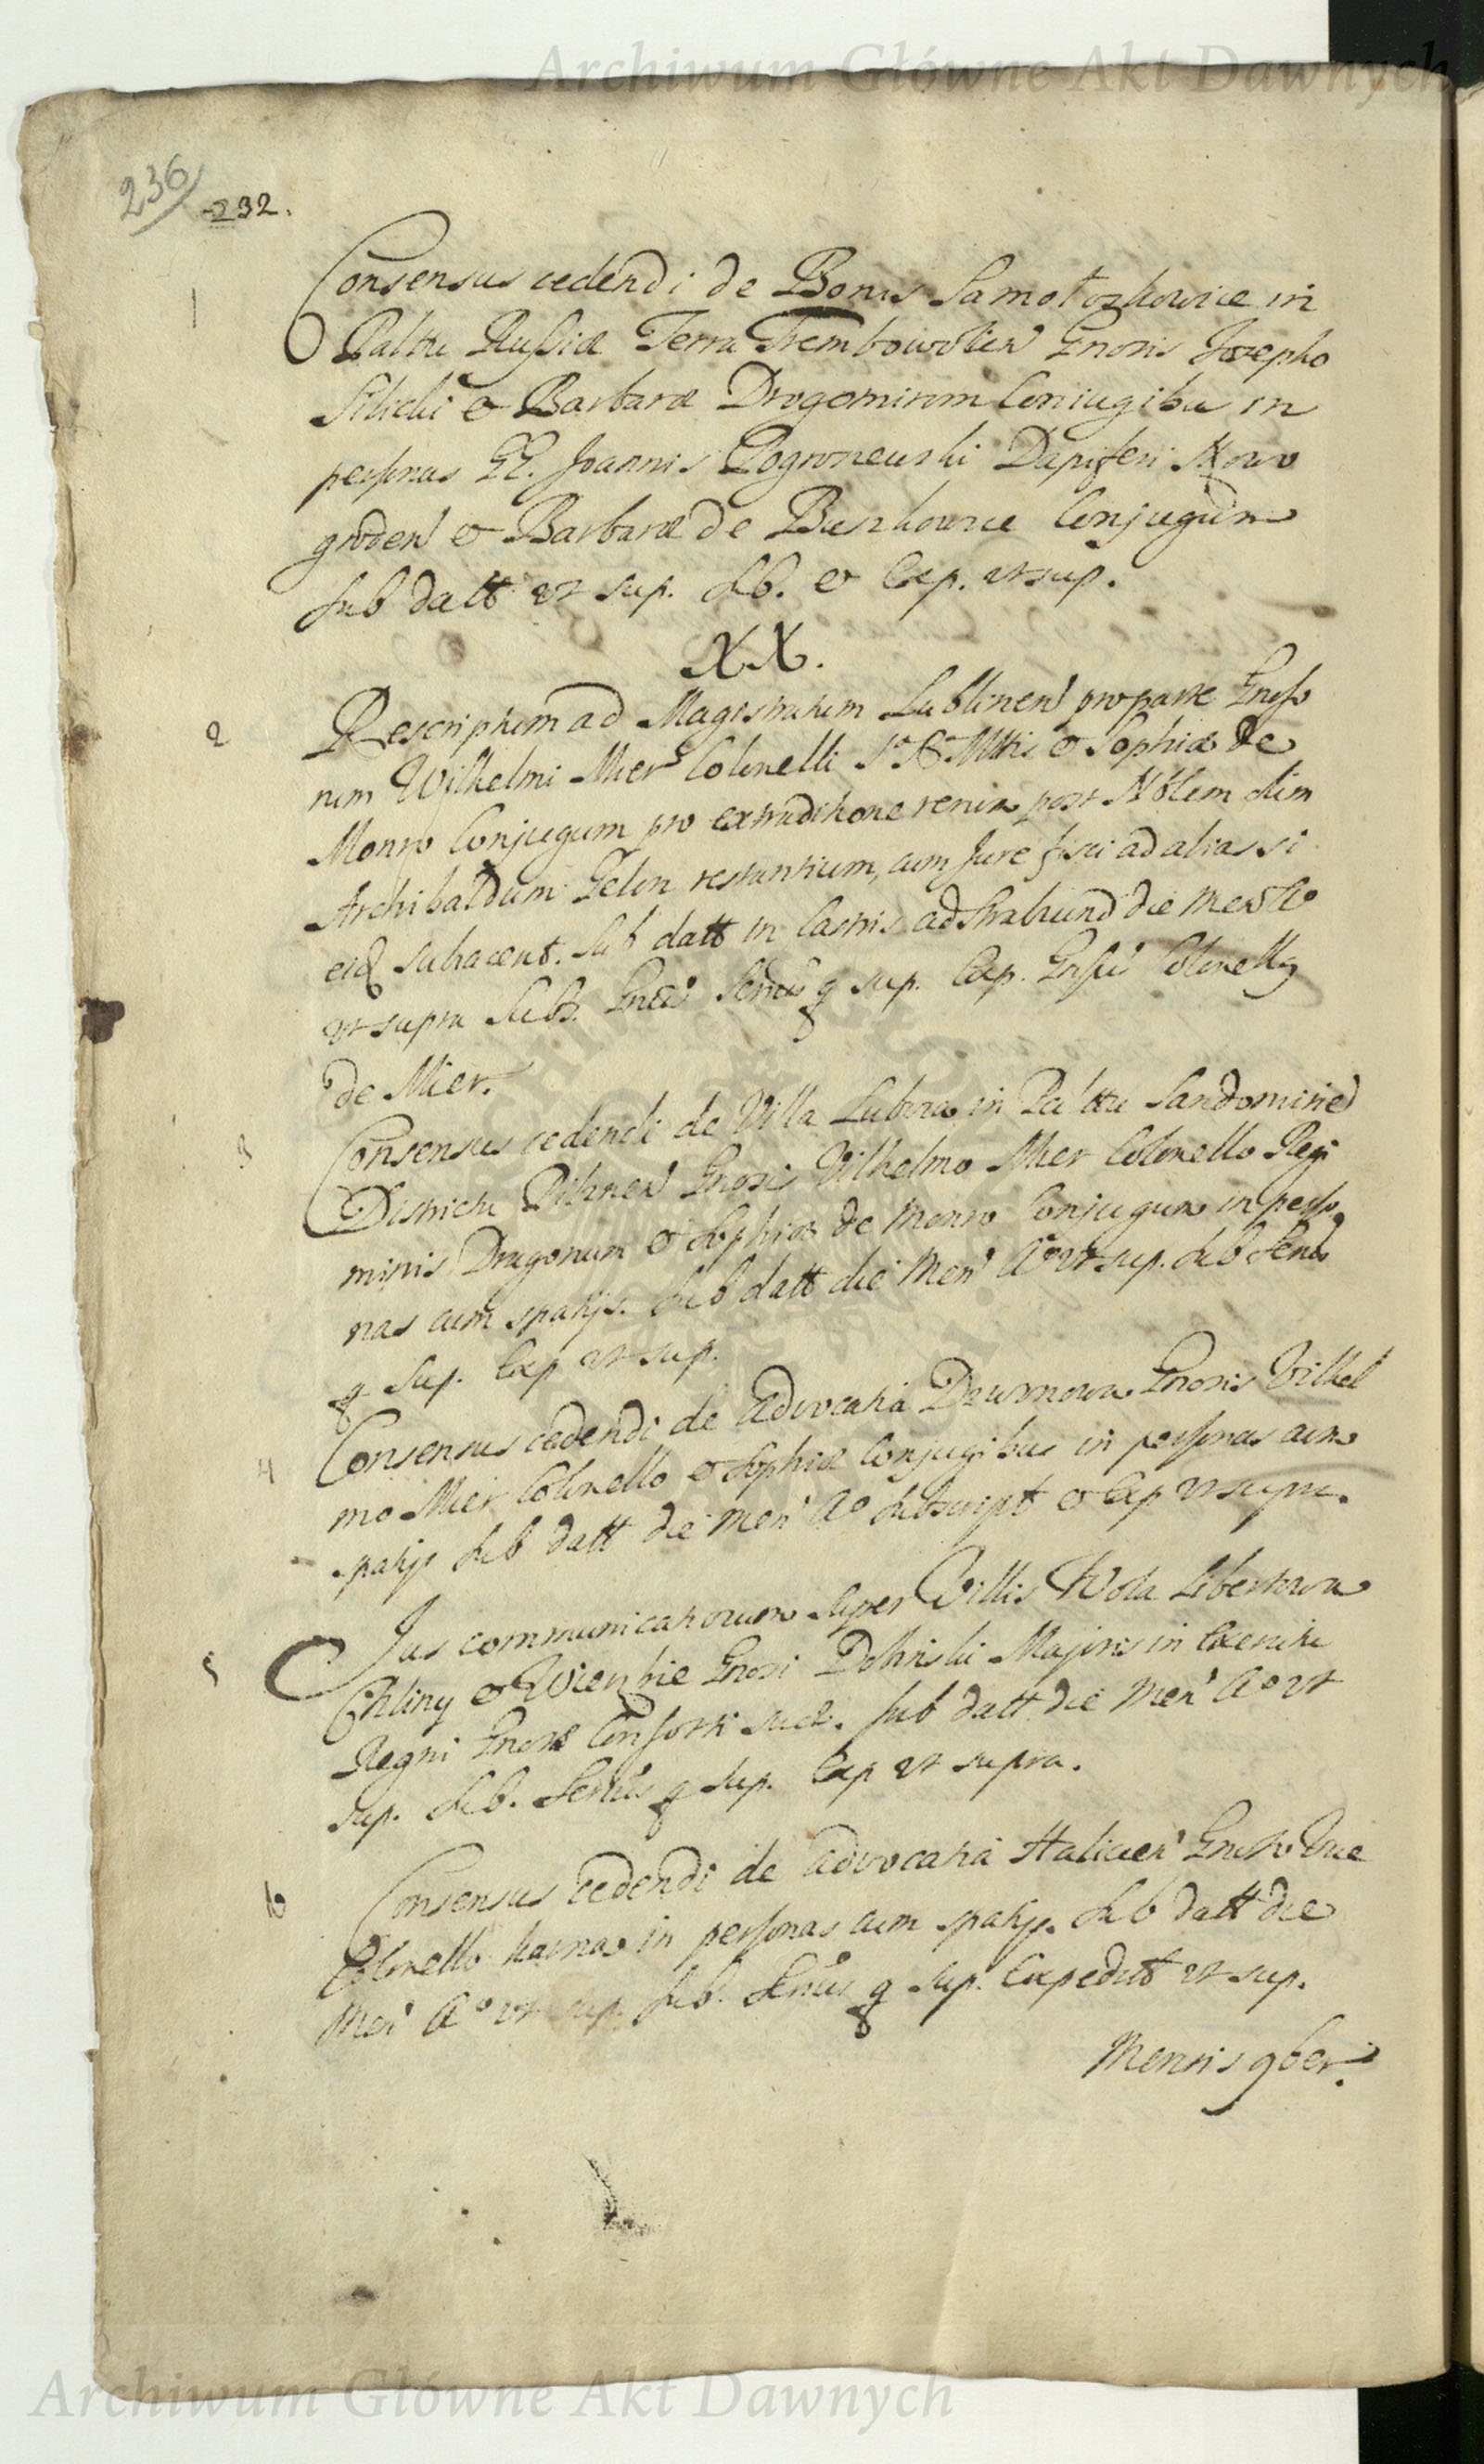 Archiwum Główne Akt Dawnych
236
232.
1
Consensus cedendi de Bonis Samołozkowice in
Palttu Russiæ Terra Trembowolien Gnosis Josepho
Silicki & Barbaræ Drogomirom Coniugibus in
personas GG. Joannis Pogroneuski Dapiferi Novo
groden & Barbaræ de Conjugum
sub datt ut sup. sub. & Exp. ut sup.
XX.
2
Rescriptum ad Magistratum Lublinen pro parte Gnoso
rum Wilhelmi Mier Colonelli S. R. Mttis & Sophiæ de
Monro Conjugum pro extraditione rerum post Nobilem olim
Archibaldum restantium, cum Jure fisci ad alias si
eid subiacent. Sub datt in Castris ad Stralsund die Men Ao
ut supra subs. sup. Exp. Colonellg
de Mier.
3
Consensus cedendi de Villa Lubcza in Palttu Sandomirien
Districtu Pilznen Gnosis Vilhelmo Mier Colonello Regi
minis Dragonum & Sophiæ de Monro Conjugum in perso
nas cum spatijs. Sub datt die Men Ao ut sup. sub
q sup. Exp ut sup.
4
Consensus cedendi de advocatia Gnosis Vilhel
mo Mier Colonello & Sophiæ Conjugibus in personas cum
spatijs sub datt die Men Ao subscript & Exp ut supra.
5
Jus communicativum super Villis Wola Libertowa
Chliny & Wierzbie Gnosi Dolinski Majoris in Exercitu
Regni Gnosæ Consorti suæ. sub datt die Men Ao ut
sup. sub. q sup. Exp ut supra.
6
Consensus cedendi de advocatia Halicien
Colonello in personas cum spatijs. sub datt die
Men Ao ut sup. sub. q sup. Expedit ut sup.
Mensis 9ber.
Archiwum Główne Akt Dawnych